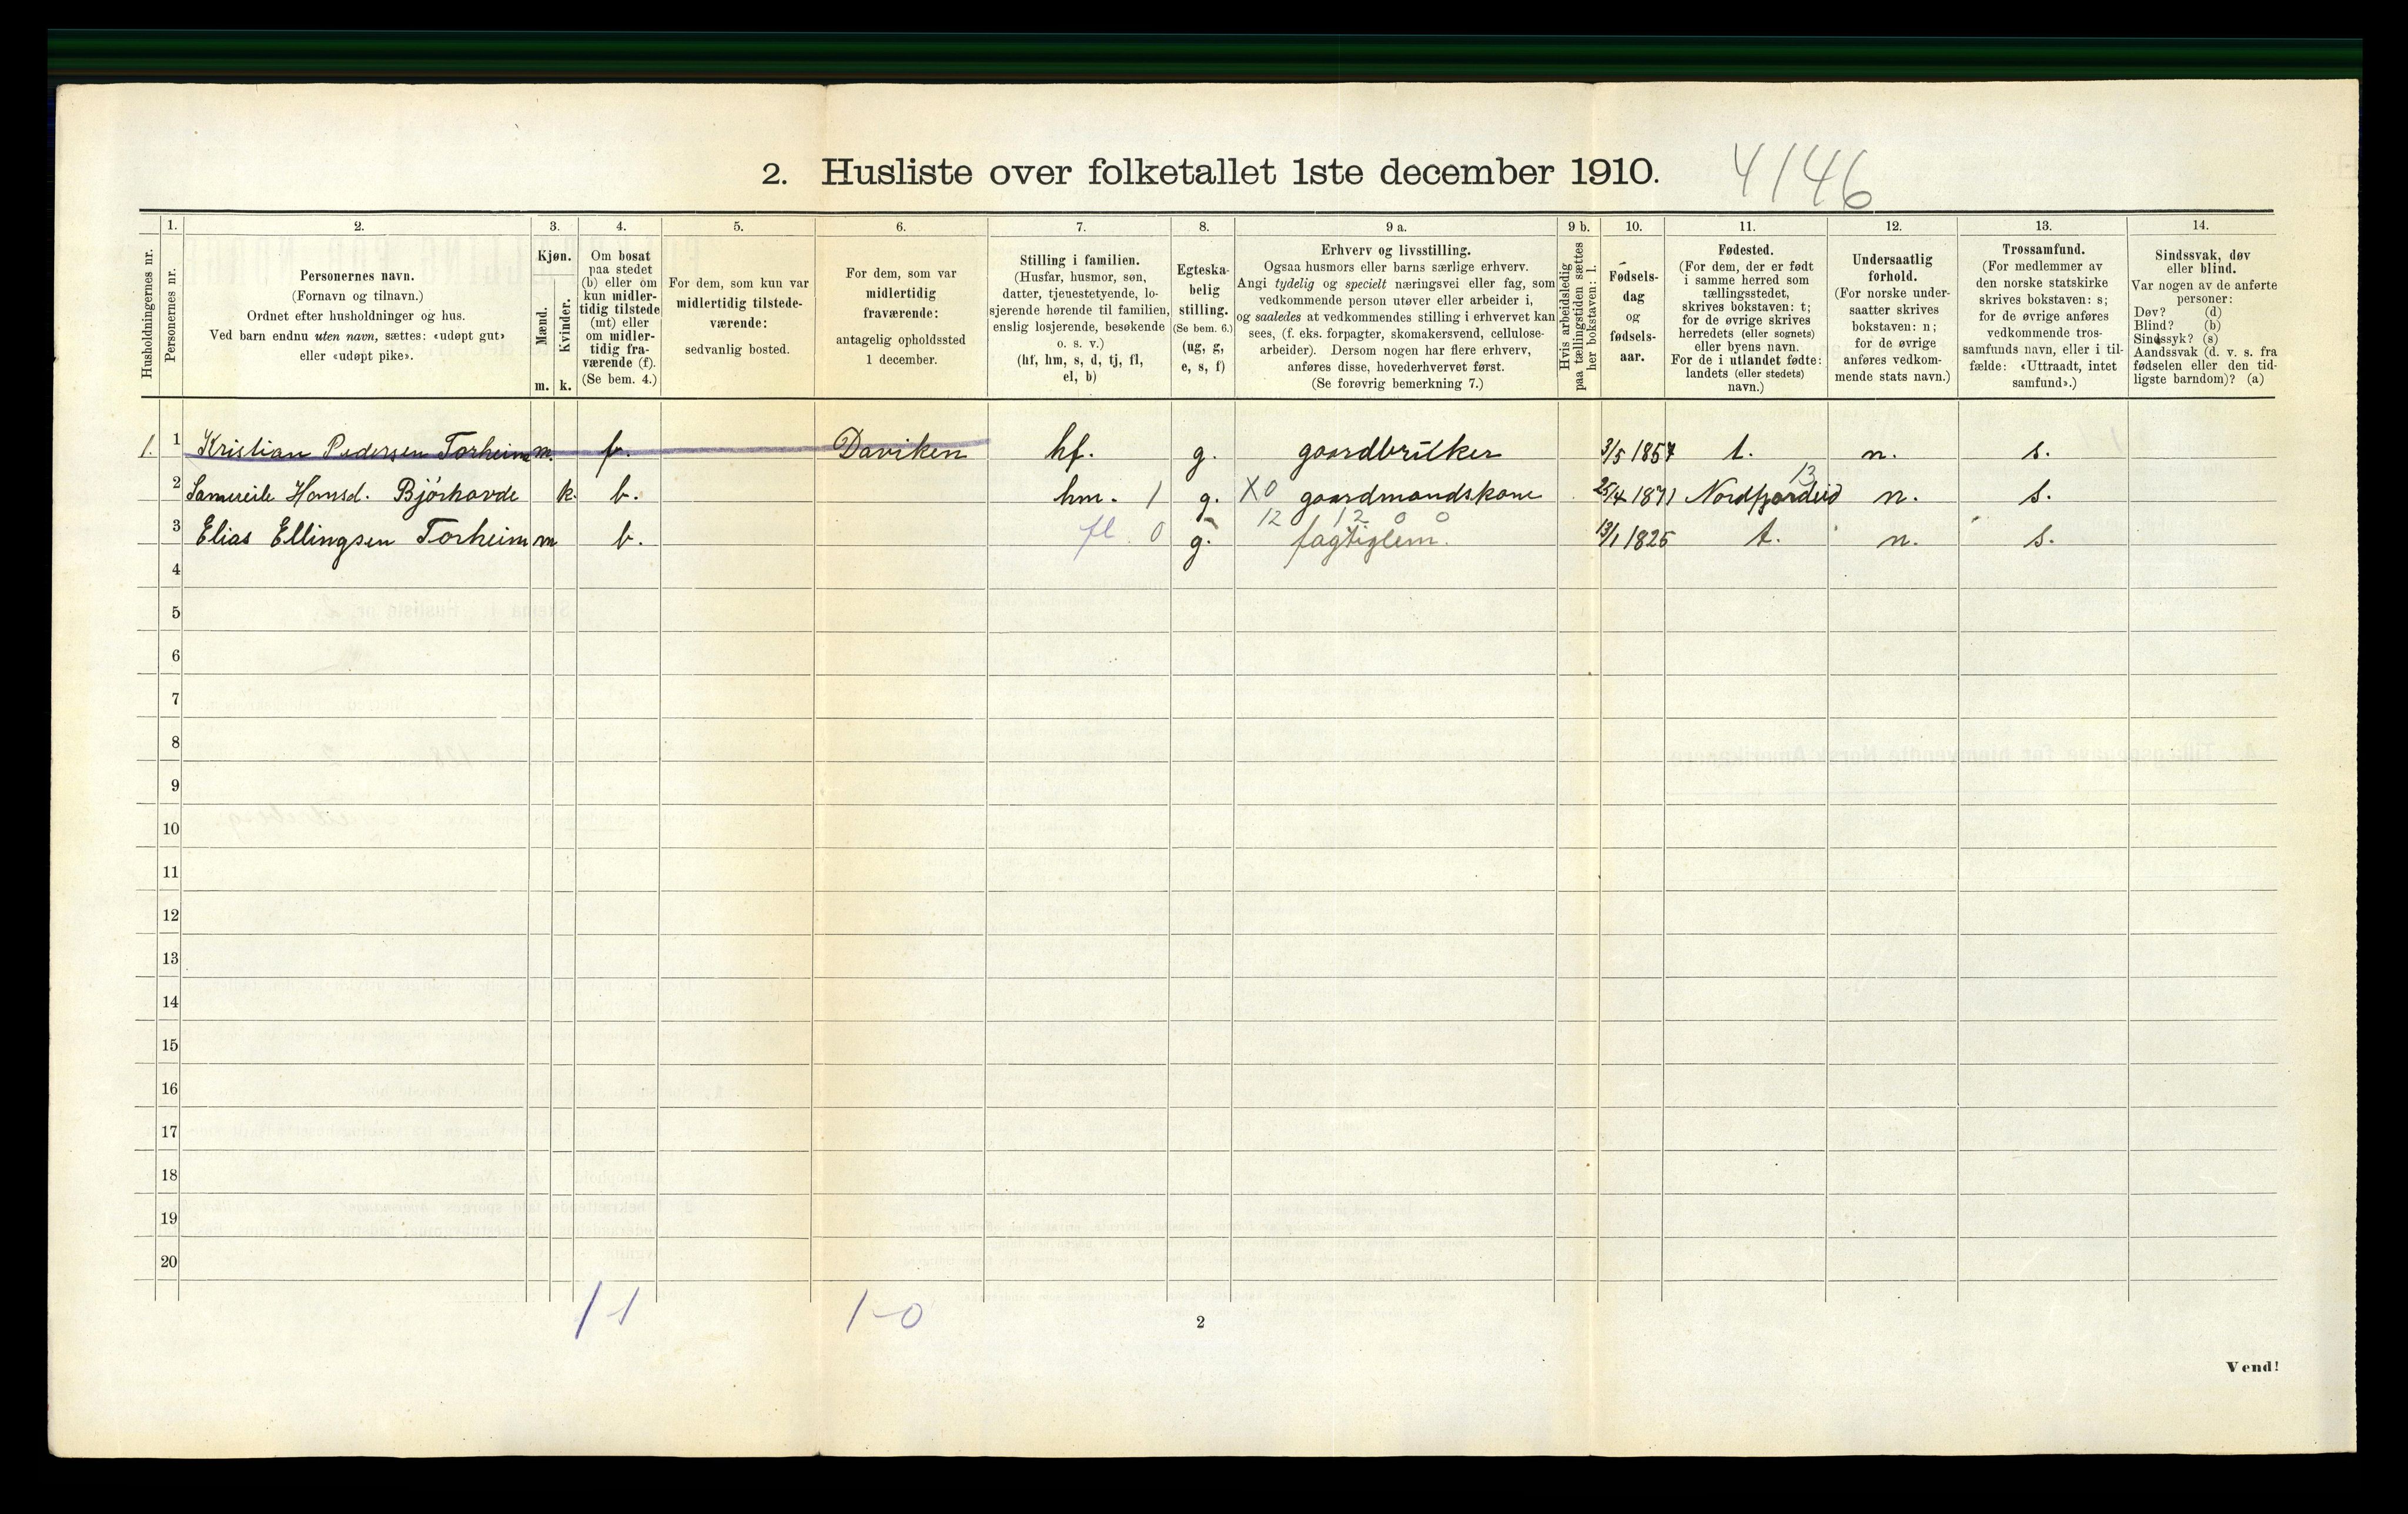 2. Husliste over folketallet 1ste december 1910. 4146
Husholdningernes nr.
1.
Personernes nr.
2.
Personernes navn.
(Fornavn og tilnavn.)
Ordnet efter husholdninger og hus.
Ved barn endnu uten navn, sættes: «udøpt gut»
eller «udøpt pike».
3.
Kjøn.
Mænd.
m.
Kvinder.
k.
4.
Om bosat
paa stedet
(b) eller om
kun midler-
tidig tilstede
(mt) eller
om midler-
tidig fra-
værende (f).
(Se bem. 4.)
5.
For dem, som kun var
midlertidig tilstede-
værende:
sedvanlig bosted.
6.
For dem, som var
midlertidig
fraværende:
antagelig opholdssted
1 december.
7.
Stilling i familien.
(Husfar, husmor, søn,
datter, tjenestetyende, lo-
sjerende hørende til familien,
enslig losjerende, besøkende
o. s. v.)
(hf, hm, s, d, tj, fl,
el, b)
8.
Egteska-
belig
stilling.
(Se bem. 6.)
(ug, g,
e, s, f)
9 a.
Erhverv og livsstilling.
Ogsaa husmors eller barns særlige erhverv.
Angi tydelig og specielt næringsvei eller fag, som
vedkommende person utøver eller arbeider i,
og saaledes at vedkommendes stilling i erhvervet kan
sees, (f. eks. forpagter, skomakersvend, cellulose-
arbeider). Dersom nogen har flere erhverv,
anføres disse, hovederhvervet først.
(Se forøvrig bemerkning 7.)
9 b.
Hvis arbeidsledig
paa tællingstiden sættes
her bokstaven: l.
10.
Fødsels-
dag
og
fødsels-
aar.
11.
Fødested.
(For dem, der er født
i samme herred som
tællingsstedet,
skrives bokstaven: t;
for de øvrige skrives
herredets (eller sognets)
eller byens navn.
For de i utlandet fødte:
landets (eller stedets)
navn.)
12.
Undersaatlig
forhold.
(For norske under-
saatter skrives
bokstaven: n;
for de øvrige
anføres vedkom-
mende stats navn.)
13.
Trossamfund.
(For medlemmer av
den norske statskirke
skrives bokstaven: s;
for de øvrige anføres
vedkommende tros-
samfunds navn, eller i til-
fælde: «Uttraadt, intet
samfund».)
14.
Sindssvak, døv
eller blind.
Var nogen av de anførte
personer:
Døv? (d)
Blind? (b)
Sindssyk? (s)
Aandssvak (d. v. s. fra
fødselen eller den tid-
ligste barndom)? (a)
1. 1 Kristian Pedersen Torheim m. f. Daviken hf. g. gaardbruker 3/5 1857 t. n. s.
13
2 Hansd. Bjørhovde k. b. hm. 1 g. X0 gaardmandskone 25/4 1871 Nordfjordeid n. s.
12 12 0 0
3 Elias Ellingsen Torheim m b. fl. 0 g. fagtiglem. 13/1 1825 t. n. s.
4
5
6
7
8
9
10
11
12
13
14
15
16
17
18
19
20
1 1 1-0
2
Vend!